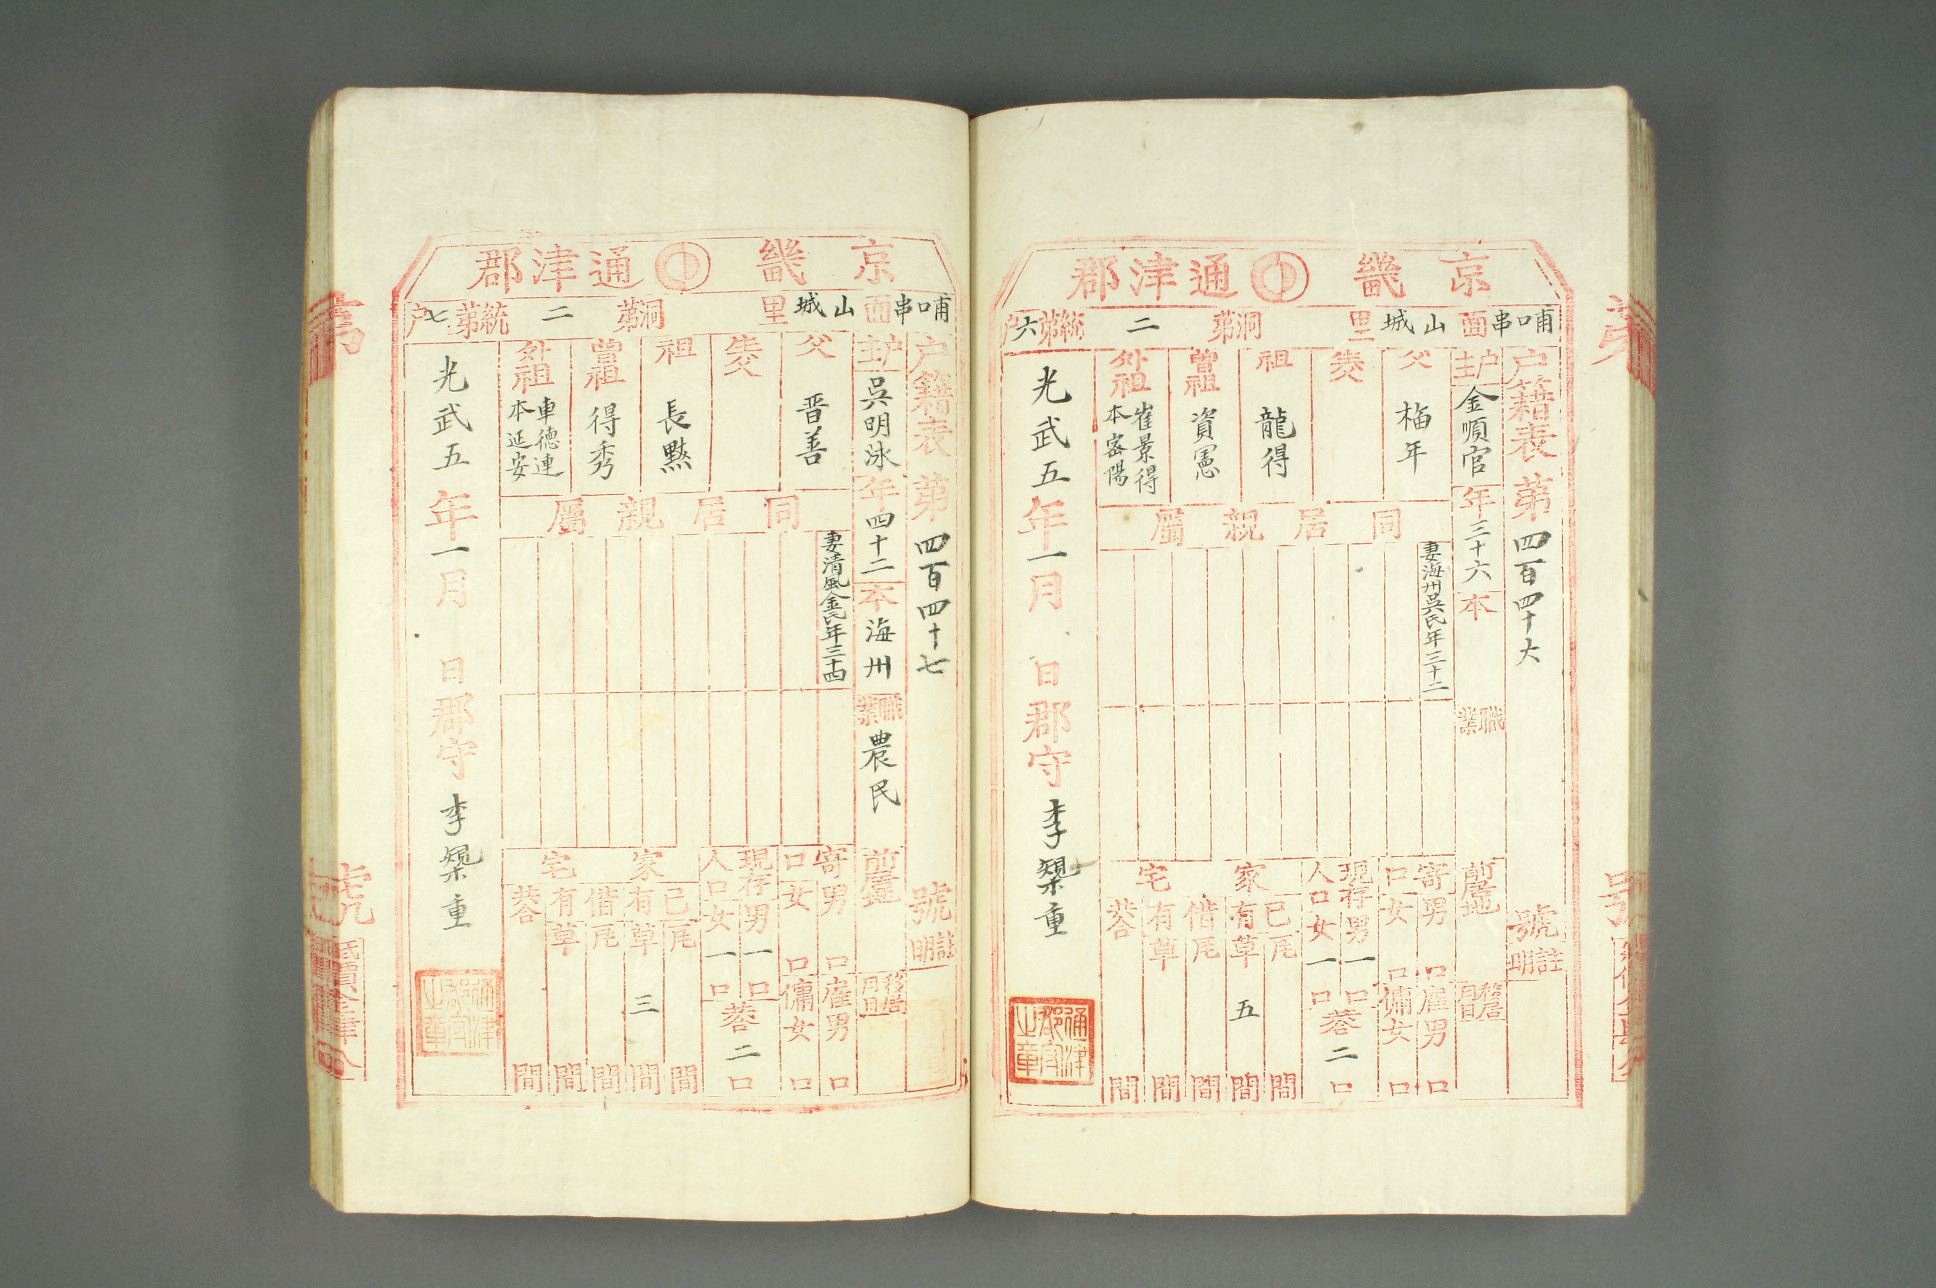 京畿 通津郡
哺口串面 山城里 洞第二統第六戶
戶籍表 第四百四十六 號 註明
戶主 金順官 年三十六 本 職業 前居地 移居月日
父 年
生父
祖 龍得
曾祖 資憲
外祖 崔景得 本密陽
同居親屬
妻海州吳氏年三十二
寄口 男 口 女 口
雇傭 男 口 女 口
現存人口 男一口 女一口 共二口
家宅 己有 瓦 間 草 五間
借有 瓦 間 草 間 共 間
光武五年一月 日 郡守 李 重
通津郡守之章
京畿 通津郡
哺口串面 山城里 洞第二統第七戶
戶籍表 第四百四十七 號 註明
戶主 吳明泳 年四十二 本海州 職業 農民 前居地 移居月日
父 晋善
生父
祖 長黙
曾祖 得秀
外祖 車德連 本延安
同居親屬
妻清風金氏年三十四
寄口 男 口 女 口
雇傭 男 口 女 口
現存人口 男一口 女一口 共二口
家宅 己有 瓦 間 草 三間
借有 瓦 間 草 間 共 間
光武五年一月 日 郡守 李 重
通津郡守之章